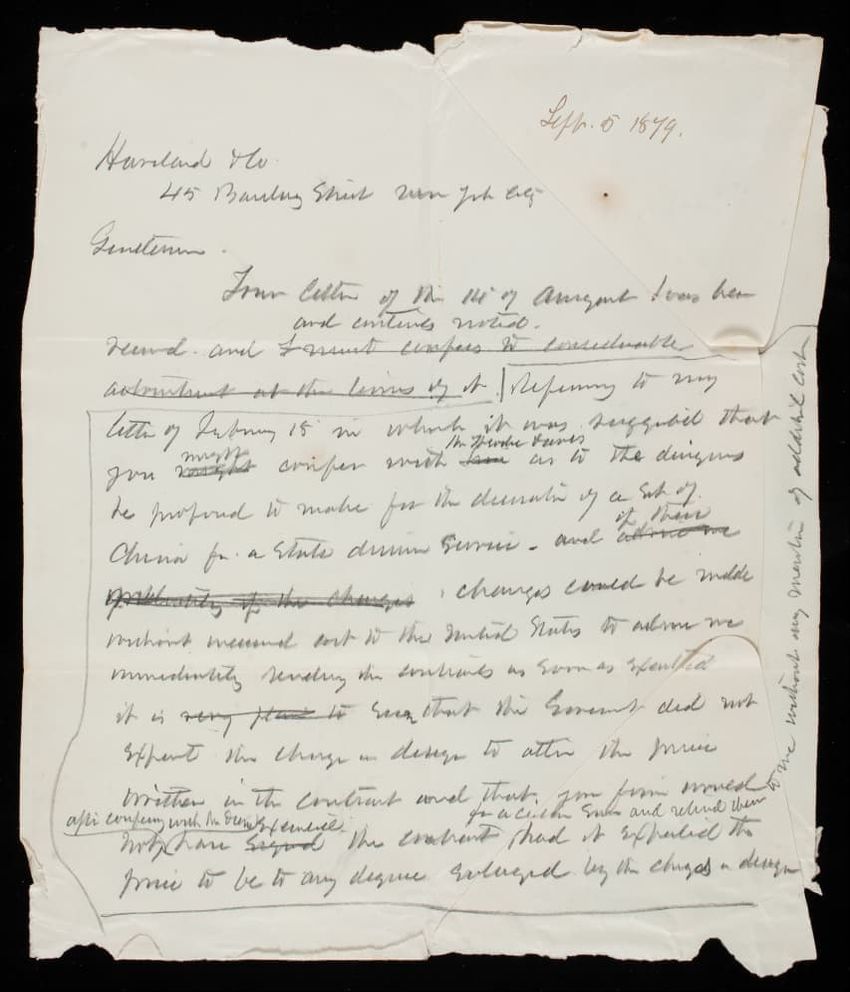 Sept. 5 1879.
Haviland & Co
45 Barclay Street New York City
Gentlemen.
Your letter of the 18 of August has been
and contents noted.
received. and I must confess to considerable
astonishment at the terms of it Referring to my
letter of February 15 in which it was suggested that
might Mr Theodore Davis
you might confer with him as to the designs
he proposed to make for the decoration of a set of
if these
China for a State dinner Service - and advise me
of the changes changes could be made
without increased cost to the United States to advise me
immediately sending the contracts as soon as executed
it is very plain to that the Government did not
expect the change in design to alter the price
written in the contract and that your firm would
after confering with Mr Davis executed for a certain sum and returned them to me without any mention of additional cost
not have signed the contract had it expected the
price to be to any degree enlarged by the changes in design